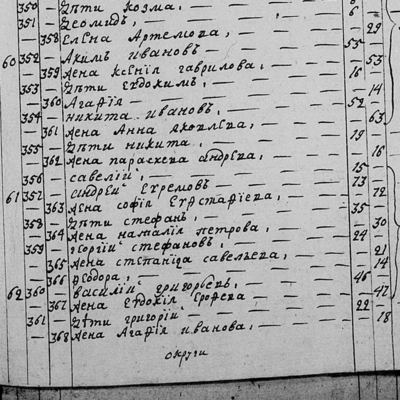 350 дѣти козма, 8
351 Деомидъ, 6
358 Елена Артемова, 29
60 352 Акимъ Ивановъ 53
359 жена Ксенїя Гаврилова, 53
353 дѣти Евдокимъ, 16
360 Агафїя 14
354 никита ивановъ, 52
361 жена Анна яковлева, 63
355 дѣти никита, 19
362 жена параскева андрева, 16
356 савелїй, 15
61 357 андрей Ехремовъ 73
363 жена софїя Еустафїева, 72
358 дѣти стефанъ, 35
364 жена наталїя петрова, 30
359 георгїй стефановъ, 24
365 жена степанїда савельева, 21
366 феодора, 14
62 360 василїй григорьевъ, 46
367 жена Евдокїя 47
361 дѣти григорїй 22
368 жена Агафїя иванова, 18
округи